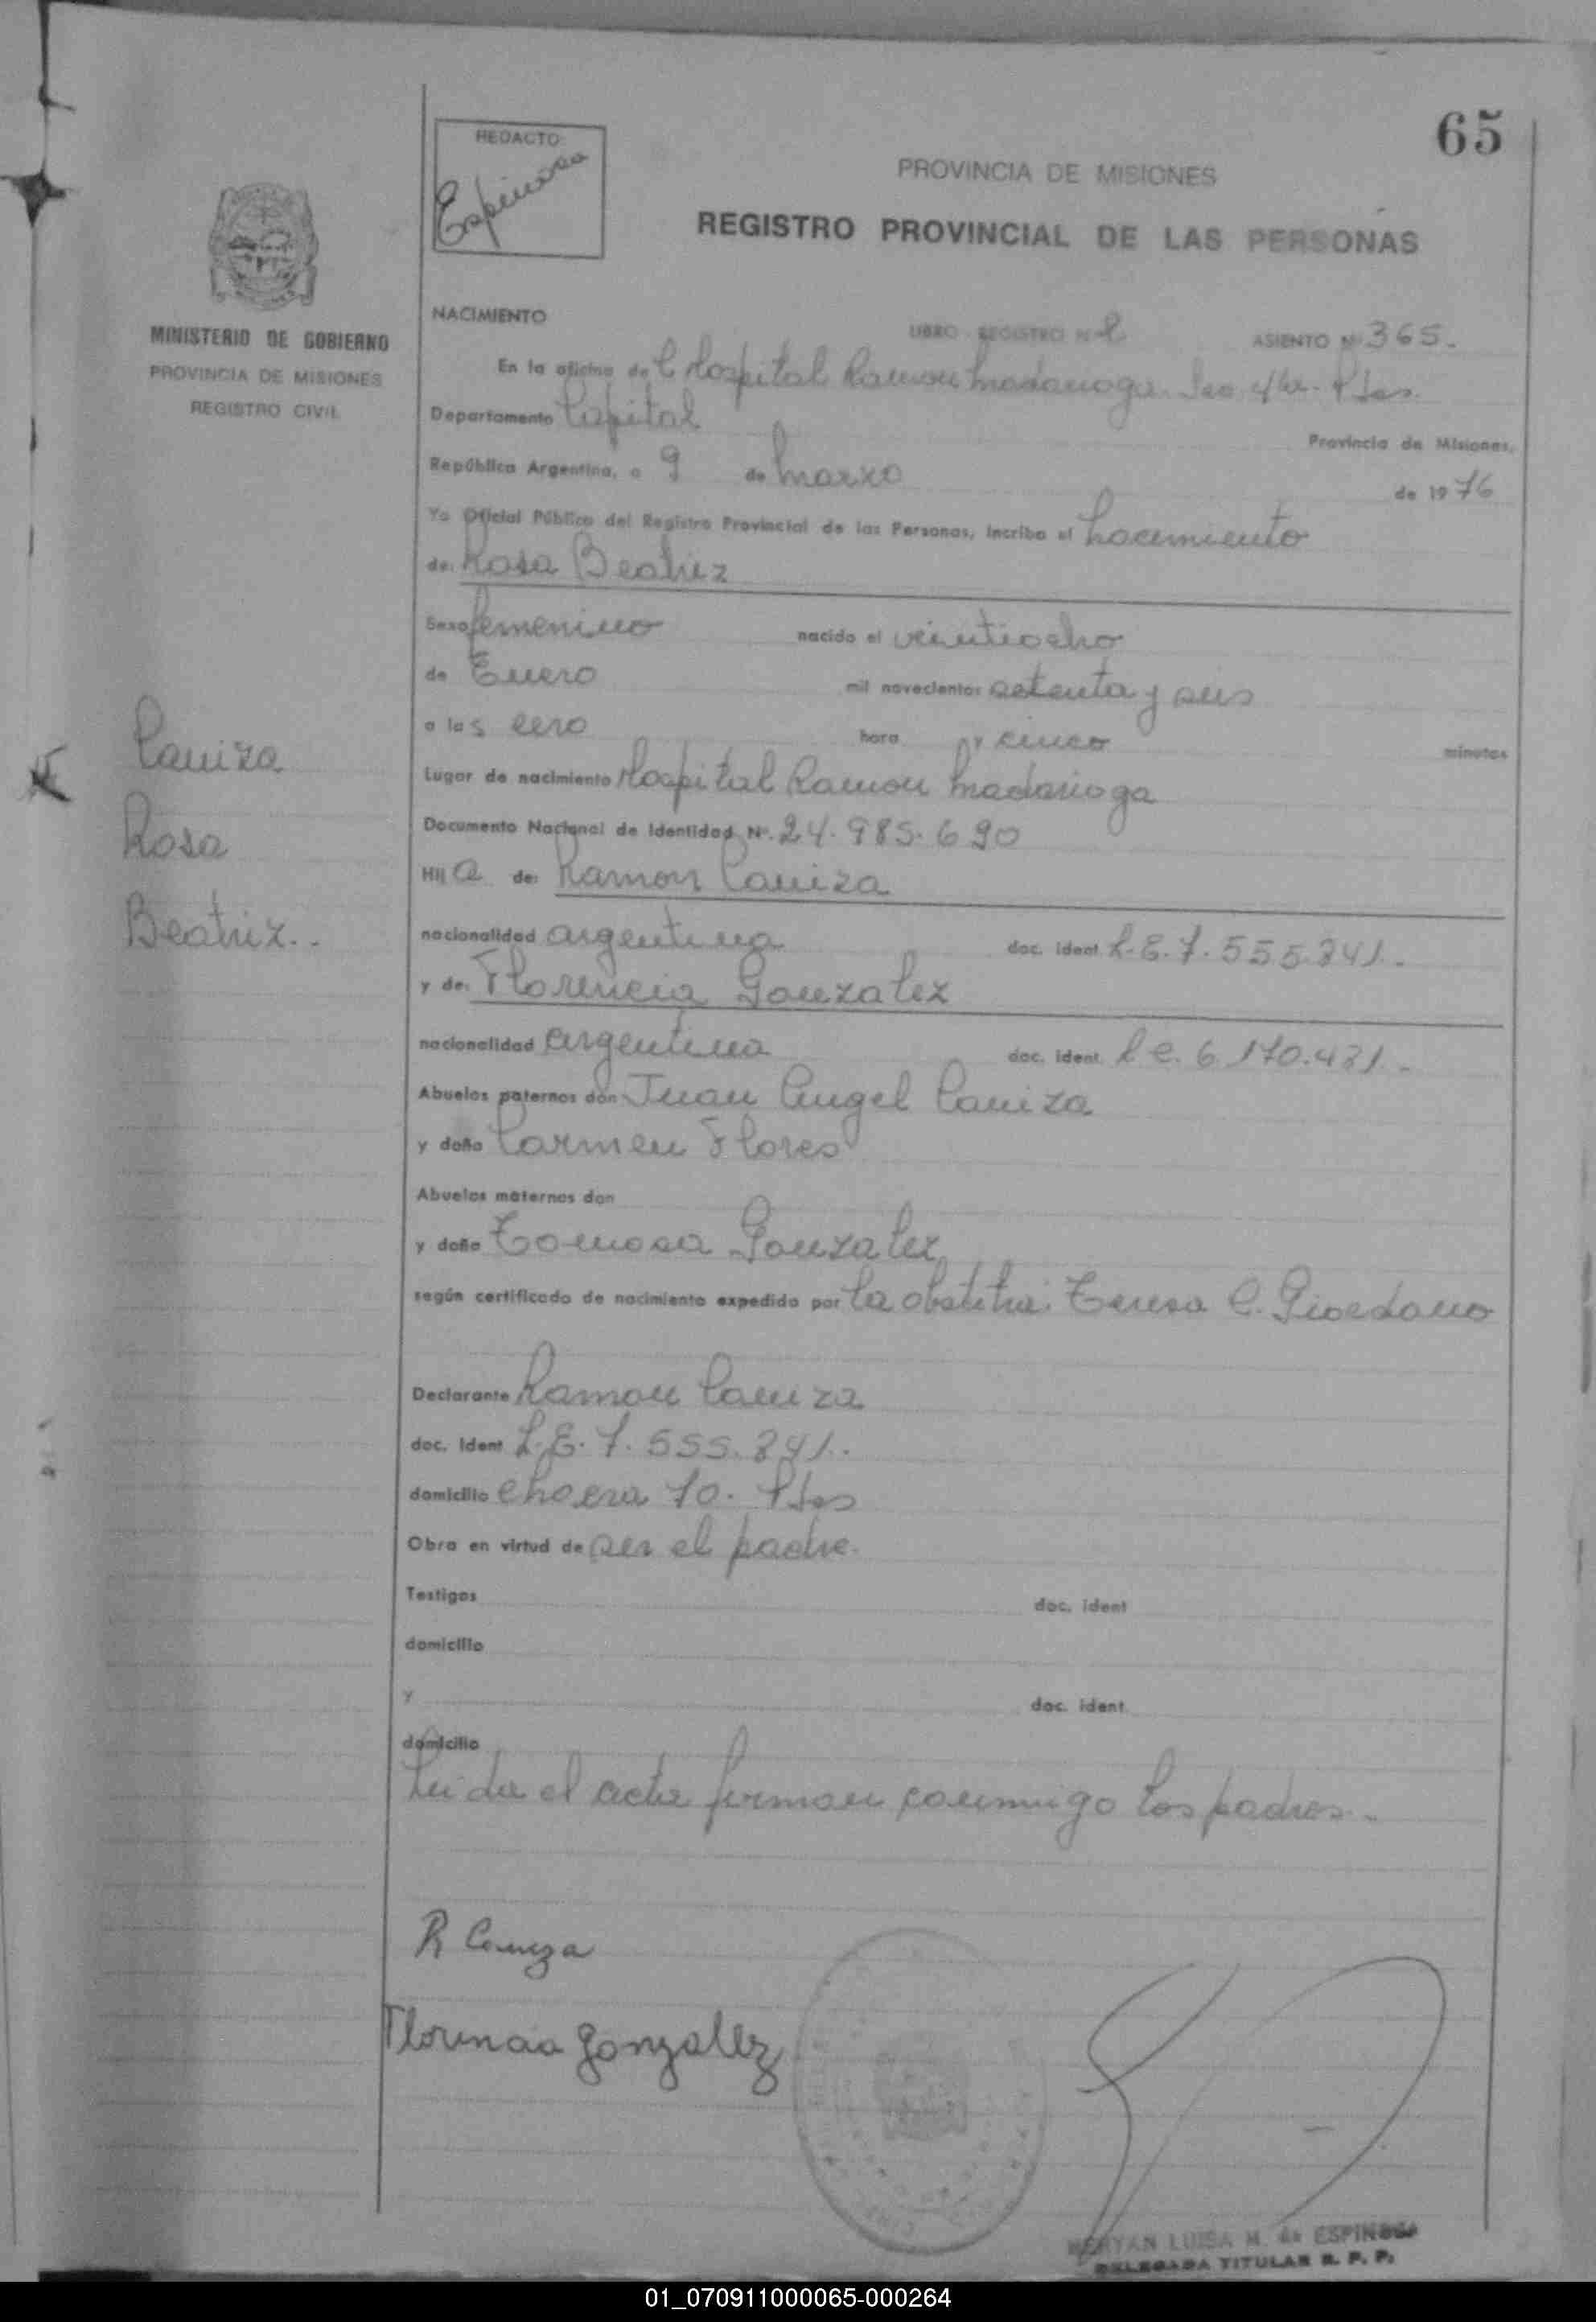 65
REDACTO
Espinosa
PROVINCIA DE MISIONES
REGISTRO PROVINCIAL DE LAS PERSONAS
MINISTERIO DE GOBIERNO
PROVINCIA DE MISIONES
REGISTRO CIVIL
NACIMIENTO
LIBRO REGISTRO Nº ASIENTO Nº 365.
En la oficina de Hospital Ramon Madariaga
Departamento Capital
Provincia de Misiones,
República Argentina, a 9 de Marzo de 1976
Yo Oficial Público del Registro Provincial de las Personas, incribo el Nacimiento
de: Rosa Beatriz
Sexo femenino nacido el veintiocho
de Enero mil novecientos setenta y seis
a las cero hora y cinco minutos
Lugar de nacimiento Hospital Ramon Madariaga
Documento Nacional de Identidad Nº. 24.985.690
Hij a de: Ramon Caniza
nacionalidad argentina doc. ident L.E. 7.555.841.-
y de: Florencia Gonzalez
nacionalidad argentina doc. ident. L.C. 6.170.431.-
Abuelos paternos don Juan Angel Caniza
y doña Carmen Flores
Abuelos maternos don
y doña Tomasa Gonzalez
según certificado de nacimiento expedido por la obstetra: Teresa C. Giordano
Declarante Ramon Caniza
doc. ident L.E. 7.555.841.-
domicilio chacra 70. Pdas
Obra en virtud de ser el padre.
Testigos doc. ident
domicilio
y doc. ident.
domicilio
Leida el acta firman conmigo los padres.-
Caniza
Rosa
Beatriz.-
R Caniza
Florencia Gonzalez
LUISA M. de ESPINOSA
DELEGADA TITULAR R. P. P.
01_070911000065-000264